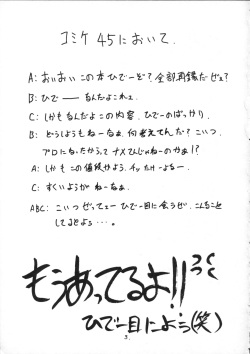 コミケ45において、
A: おいおいこの本ひでーぞ?全部再録だーぜェ?
B: ひでーーなんだよこれェ、
C: しかもなんだよこの内容、ひでーのばっかり、
B: どうしようもねーなぁ、何考えてんだ?こいつ、
プロになったからってナメてんじゃねーのかぁ!?
A: しかもこの値段かよう、チッたけーよなー
C: すくいようがねーなぁ、
ABC: こいつぜってェーひでー目に会うぜ、こんなこと
してるとよぅ…。
もうあってるよ!!
ひでー目によぅ(笑)
3